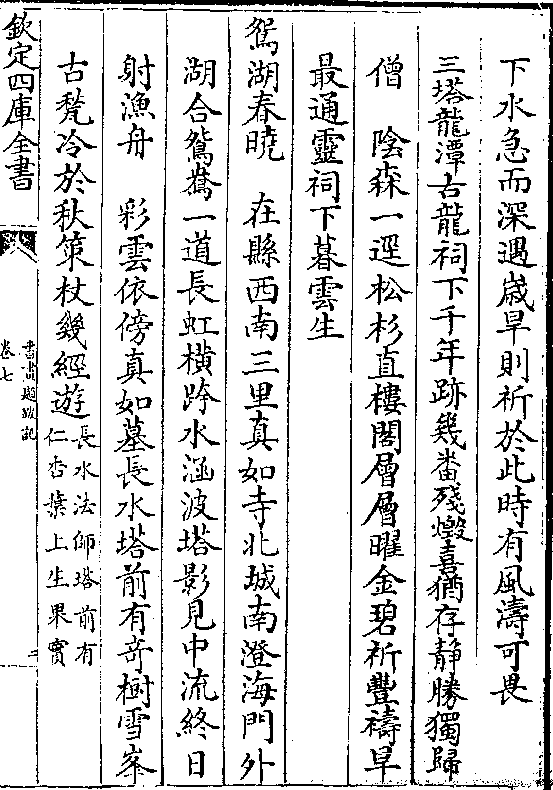 下水急而深遇歳旱則祈於此時有風濤可畏
三塔龍潭古龍祠下千年跡幾畨殘燬喜猶存静勝獨歸
僧　隂森一逕松杉直樓閣層層曜金碧祈豐禱旱
最通靈祠下暮雲生
鴛湖春曉　在縣西南三里真如寺北城南澄海門外
湖合鴛鴦一道長虹橫跨水涵波塔影見中流終日
射漁舟　彩雲依傍真如墓長水塔前有竒樹雪峯
古甃冷於秋䇿杖幾經遊長水法師塔前有仁杏葉上生果實
欽定四庫全書
書畵題跋記
卷七
二